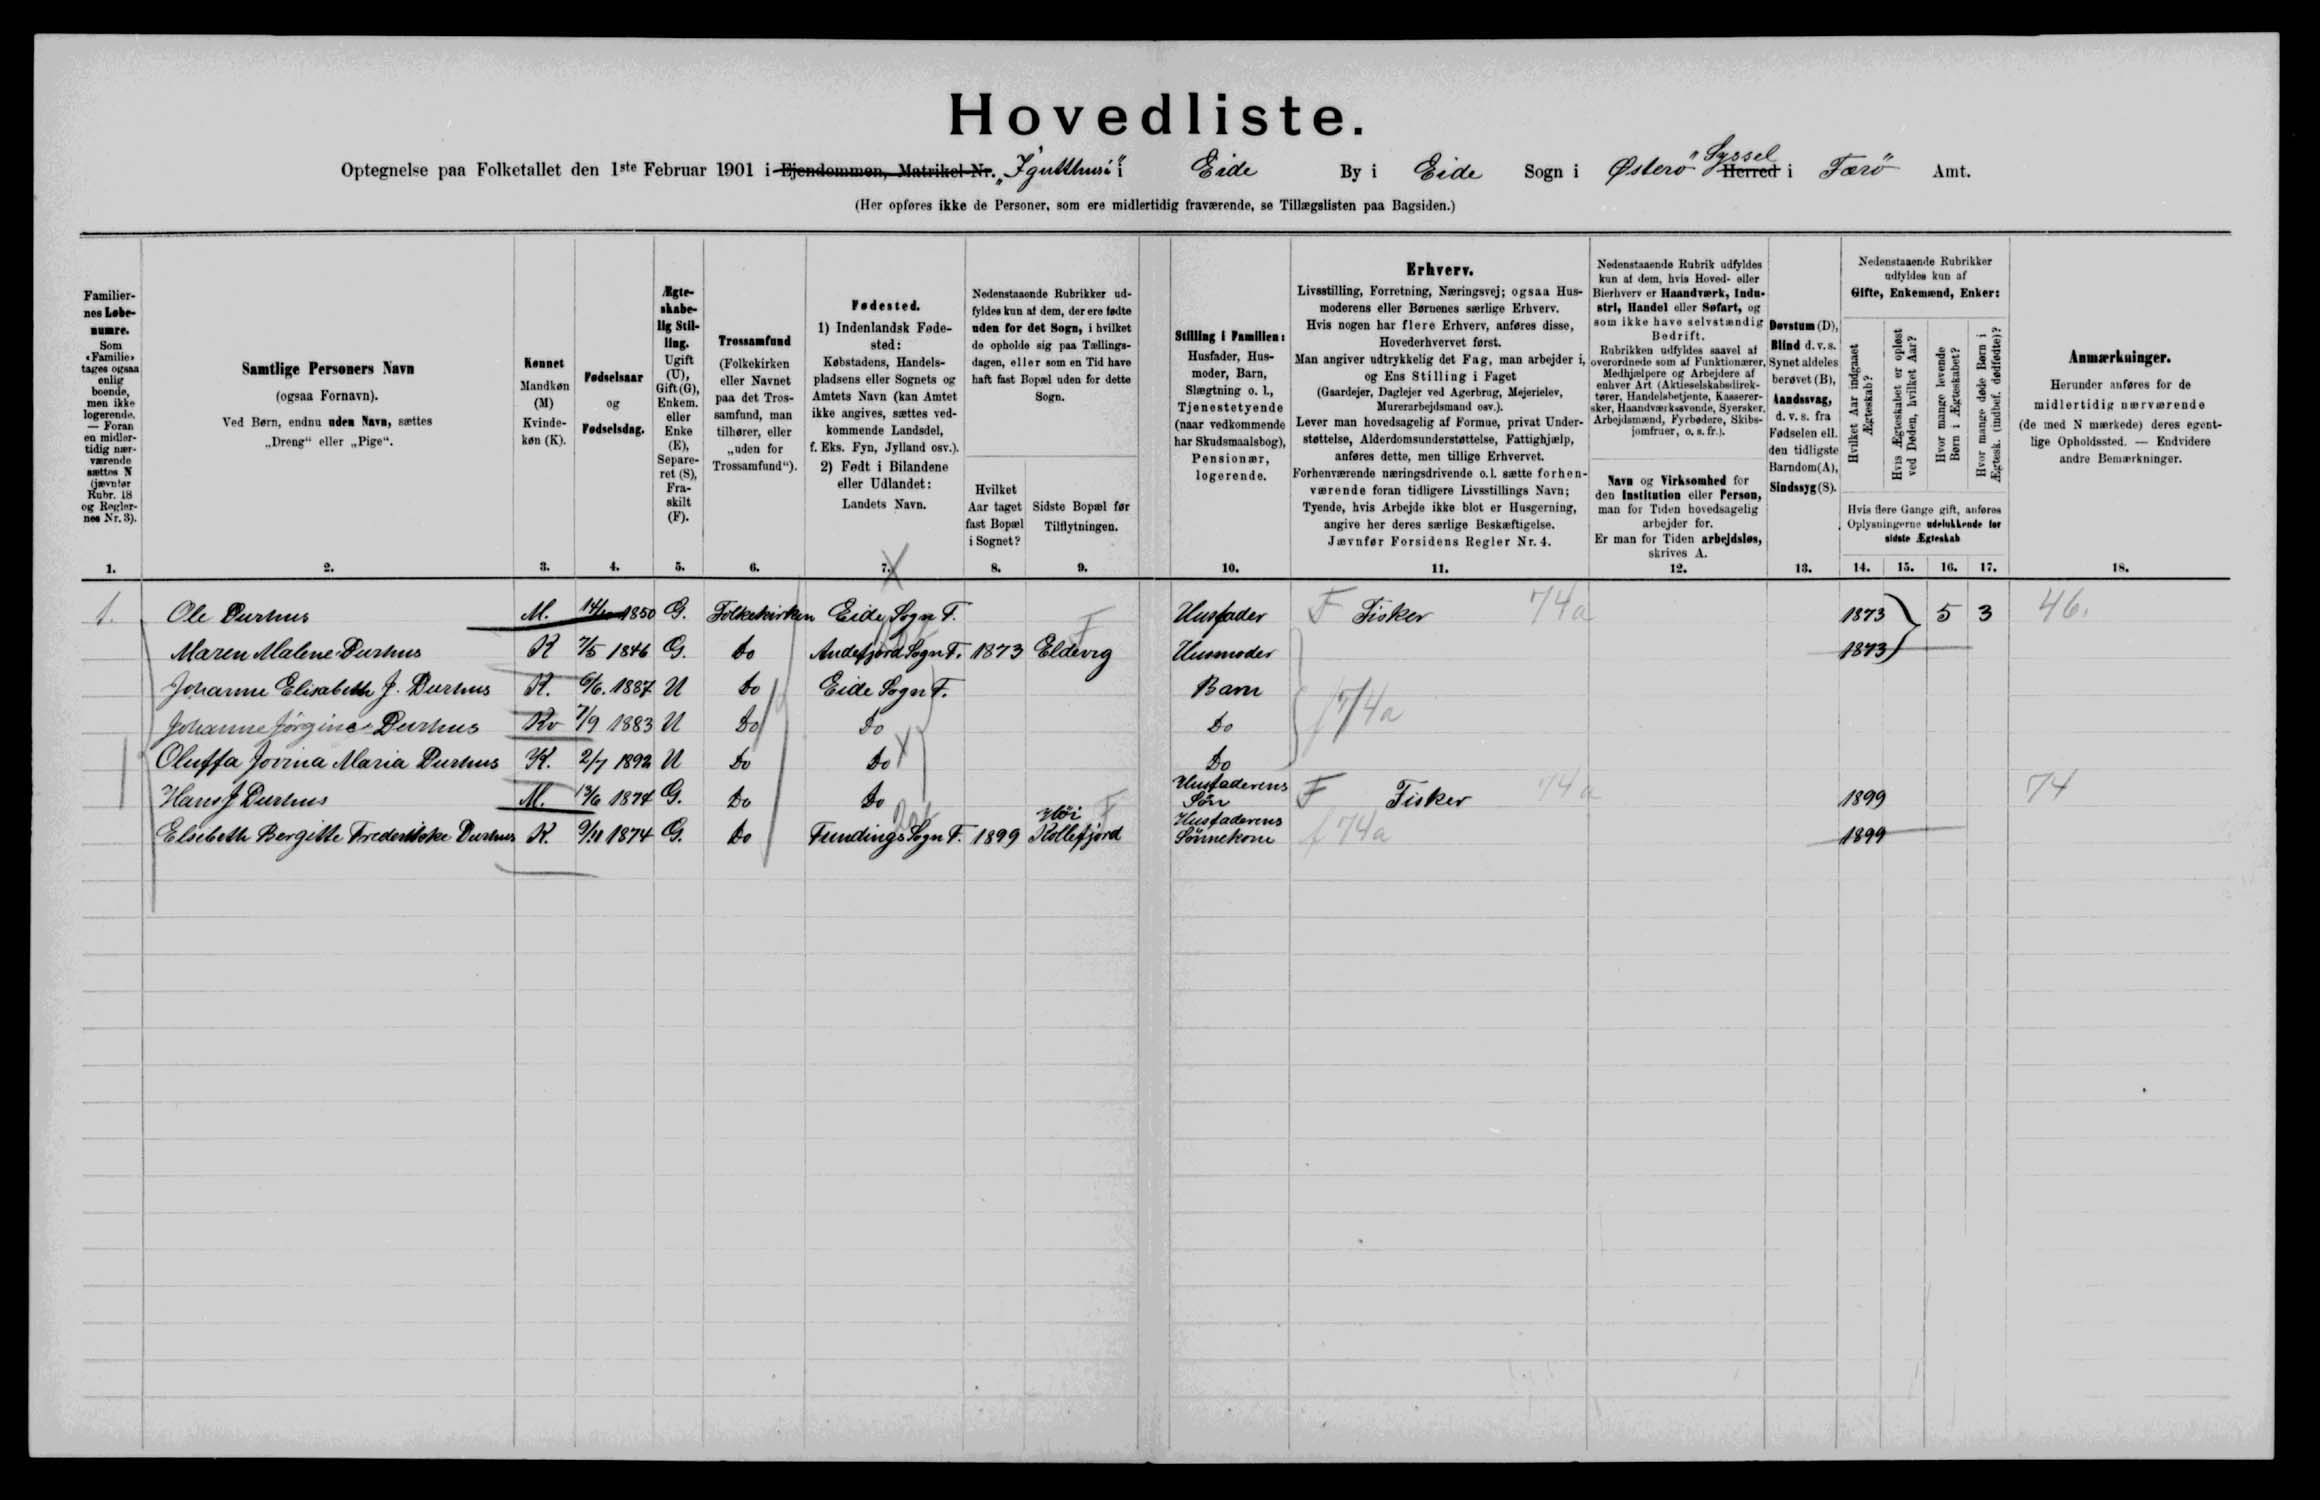 Hovedliste.
Optegnelse paa Folketallet den 1ste Februar 1901 i Ejendommen, Matrikel Nr. „Igutthusi" i Eide By i Eide Sogn i Østerö Syssel Herred i Færö Amt.
(Her opføres ikke de Personer, som ere midlertidig fraværende, se Tillægslisten paa Bagsiden.)
Familier-
nes Løbe-
numre.
Som
«Familie»
tages ogsaa
enlig
boende,
men ikke
logerende.
— Foran
en midler-
tidig nær-
værende
sættes N
(jævnfør
Rubr. 18
og Regler-
nes Nr. 3).
Samtlige Personers Navn
(ogsaa Fornavn).
Ved Børn, endnu uden Navn, sættes
„Dreng" eller „Pige".
Kønnet
Mandkøn
(M)
Kvinde-
køn (K).
Fødselsaar
og
Fødselsdag.
Ægte-
skabe-
lig Stil-
ling.
Ugift
(U),
Gift (G),
Enkem.
eller
Enke
(E),
Separe-
ret (S),
Fra-
skilt
(F).
Trossamfund
(Folkekirken
eller Navnet
paa det Tros-
samfund, man
tilhører, eller
„uden for
Trossamfund").
Fødested.
1) Indenlandsk Føde-
sted:
Købstadens, Handels-
pladsens eller Sognets og
Amtets Navn (kan Amtet
ikke angives, sættes ved-
kommende Landsdel,
f. Eks. Fyn, Jylland osv.).
2) Født i Bilandene
eller Udlandet:
Landets Navn.
Nedenstaaende Rubrikker ud-
fyldes kun af dem, der ere fødte
uden for det Sogn, i hvilket
de opholde sig paa Tællings-
dagen, eller som en Tid have
haft fast Bopæl uden for dette
Sogn.
Hvilket
Aar taget
fast Bopæl
i Sognet?
Sidste Bopæl før
Tilflytningen.
Stilling i Familien:
Husfader, Hus-
moder, Barn,
Slægtning o. l.,
Tjenestetyende
(naar vedkommende
har Skudsmaalsbog),
Pensionær,
logerende.
Erhverv.
Livsstilling, Forretning, Næringsvej; ogsaa Hus-
moderens eller Børnenes særlige Erhverv.
Hvis nogen har flere Erhverv, anføres disse,
Hovederhvervet først.
Man angiver udtrykkelig det Fag, man arbejder i,
og Ens Stilling i Faget
(Gaardejer, Daglejer ved Agerbrug, Mejerielev,
Murerarbejdsmand osv.).
Lever man hovedsagelig af Formue, privat Under-
støttelse, Alderdomsunderstøttelse, Fattighjælp,
anføres dette, men tillige Erhvervet.
Forhenværende næringsdrivende o. l. sætte forhen-
værende foran tidligere Livsstillings Navn;
Tyende, hvis Arbejde ikke blot er Husgerning,
angive her deres særlige Beskæftigelse.
Jævnfør Forsidens Regler Nr. 4.
Nedenstaaende Rubrik udfyldes
kun af dem, hvis Hoved- eller
Bierhverv er Haandværk, Indu-
stri, Handel eller Søfart, og
som ikke have selvstændig
Bedrift.
Rubrikken udfyldes saavel af
overordnede som af Funktionærer,
Medhjælpere og Arbejdere af
enhver Art (Aktieselskabsdirek-
tører, Handelsbetjente, Kasserer-
sker, Haandværkssvende, Syersker,
Arbejdsmænd, Fyrbødere, Skibs-
jomfruer, o. s. fr.).
Navn og Virksomhed for
den Institution eller Person,
man for Tiden hovedsagelig
arbejder for.
Er man for Tiden arbejdsløs,
skrives A.
Døvstum (D),
Blind d. v. s.
Synet aldeles
berøvet (B),
Aandssvag,
d. v. s. fra
Fødselen ell.
den tidligste
Barndom (A),
Sindssyg (S).
Nedenstaaende Rubrikker
udfyldes kun af
Gifte, Enkemænd, Enker:
Hvilket Aar indgaaet
Ægteskab?
Hvis Ægteskabet er opløst
ved Døden, hvilket Aar?
Hvor mange levende
Børn i Ægteskabet?
Hvor mange døde Børn i
Ægtesk. (indbef. dødfødte)?
Hvis flere Gange gift, anføres
Oplysningerne udelukkende for
sidste Ægteskab
Anmærkninger.
Herunder anføres for de
midlertidig nærværende
(de med N mærkede) deres egent-
lige Opholdssted. — Endvidere
andre Bemærkninger.
1. 2. 3. 4. 5. 6. 7. 8. 9. 10. 11. 12. 13. 14. 15. 16. 17. 18.
1. Ole Durhus M. 1850 G. Folkekirken Eide Sogn F. Husfader F Fisker 74a 1873 5 3 46.
Maren Malene Durhus K 7/5 1846 G. Do Andefjord Sogn F. 1873 Eldevig F Husmoder 1873
Johanne Elisabeth J. Durhus K. 6/6. 1887 U Do Eide Sogn F. Barn f 74a
Johanne Jørgine Durhus Kv 7/9 1883 U Do Do Do
Oluffa Jovina Maria Durhus K. 2/7 1892 U Do Do Do
Hans J Durhus M. 13/6 1874 G. Do Do Husfaderens Sön F Fisker 74a 1899 74
Elsebeth Bergitte Frederikke Durhus K. 9/11 1874 G. Do Fundings Sogn F. 1899 Kollefjord F Husfaderens Sönnekone f 74a 1899